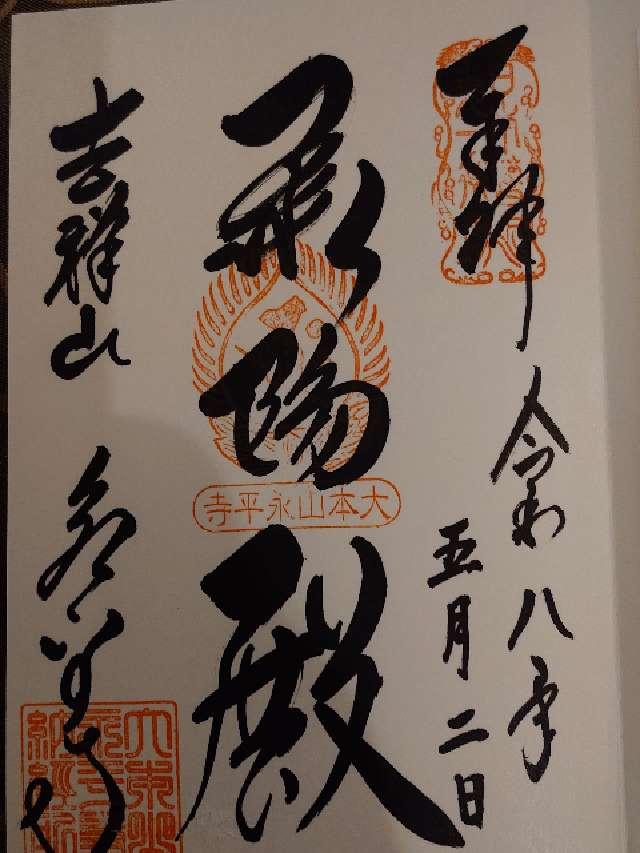 奉拝
令和八年
五月二日
承陽殿
大本山永平寺
吉祥山 永平寺